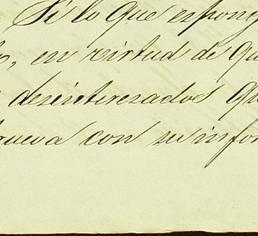 Si lo que espong
o, en virtud de qu
desinteresados qu
rueva con su infor